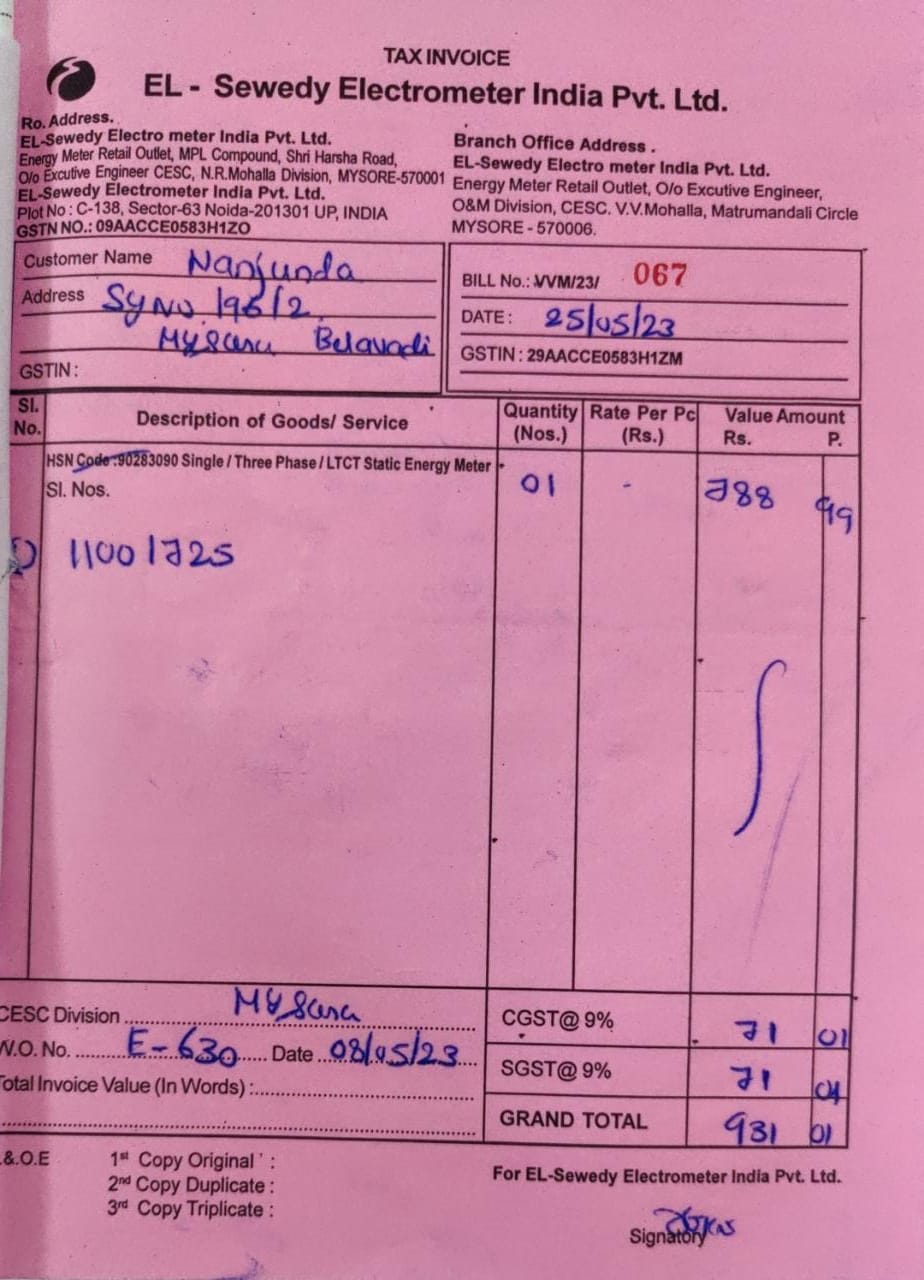 TAX INVOICE
EL - Sewedy Electrometer India Pvt. Ltd.
Ro. Address.
EL-Sewedy Electro meter India Pvt. Ltd.
Energy Meter Retail Outlet, MPL Compound, Shri Harsha Road,
O/o Excutive Engineer CESC, N.R.Mohalla Division, MYSORE-570001
EL-Sewedy Electrometer India Pvt. Ltd.
Plot No : C-138, Sector-63 Noida-201301 UP, INDIA
GSTN NO.: 09AACCE0583H1ZO
Branch Office Address .
EL-Sewedy Electro meter India Pvt. Ltd.
Energy Meter Retail Outlet, O/o Excutive Engineer,
O&M Division, CESC. V.V.Mohalla, Matrumandali Circle
MYSORE - 570006.
Customer Name Nanjunda
Address Sy No 196/2
Mysuru Belavadi
GSTIN :
BILL No.: VVM/23/ 067
DATE : 25/05/23
GSTIN : 29AACCE0583H1ZM
Sl. No. Description of Goods/ Service Quantity (Nos.) Rate Per Pc (Rs.) Value Amount Rs. P.
HSN Code :90283090 Single / Three Phase / LTCT Static Energy Meter
Sl. Nos. 01 - 788 99
1) 11001725
CESC Division Mysuru
W.O. No. E-630 Date 08/05/23
Total Invoice Value (In Words) :
CGST@ 9% 71 01
SGST@ 9% 71 01
GRAND TOTAL 931 01
.&.O.E
1st Copy Original ' :
2nd Copy Duplicate :
3rd Copy Triplicate :
For EL-Sewedy Electrometer India Pvt. Ltd.
Signatory